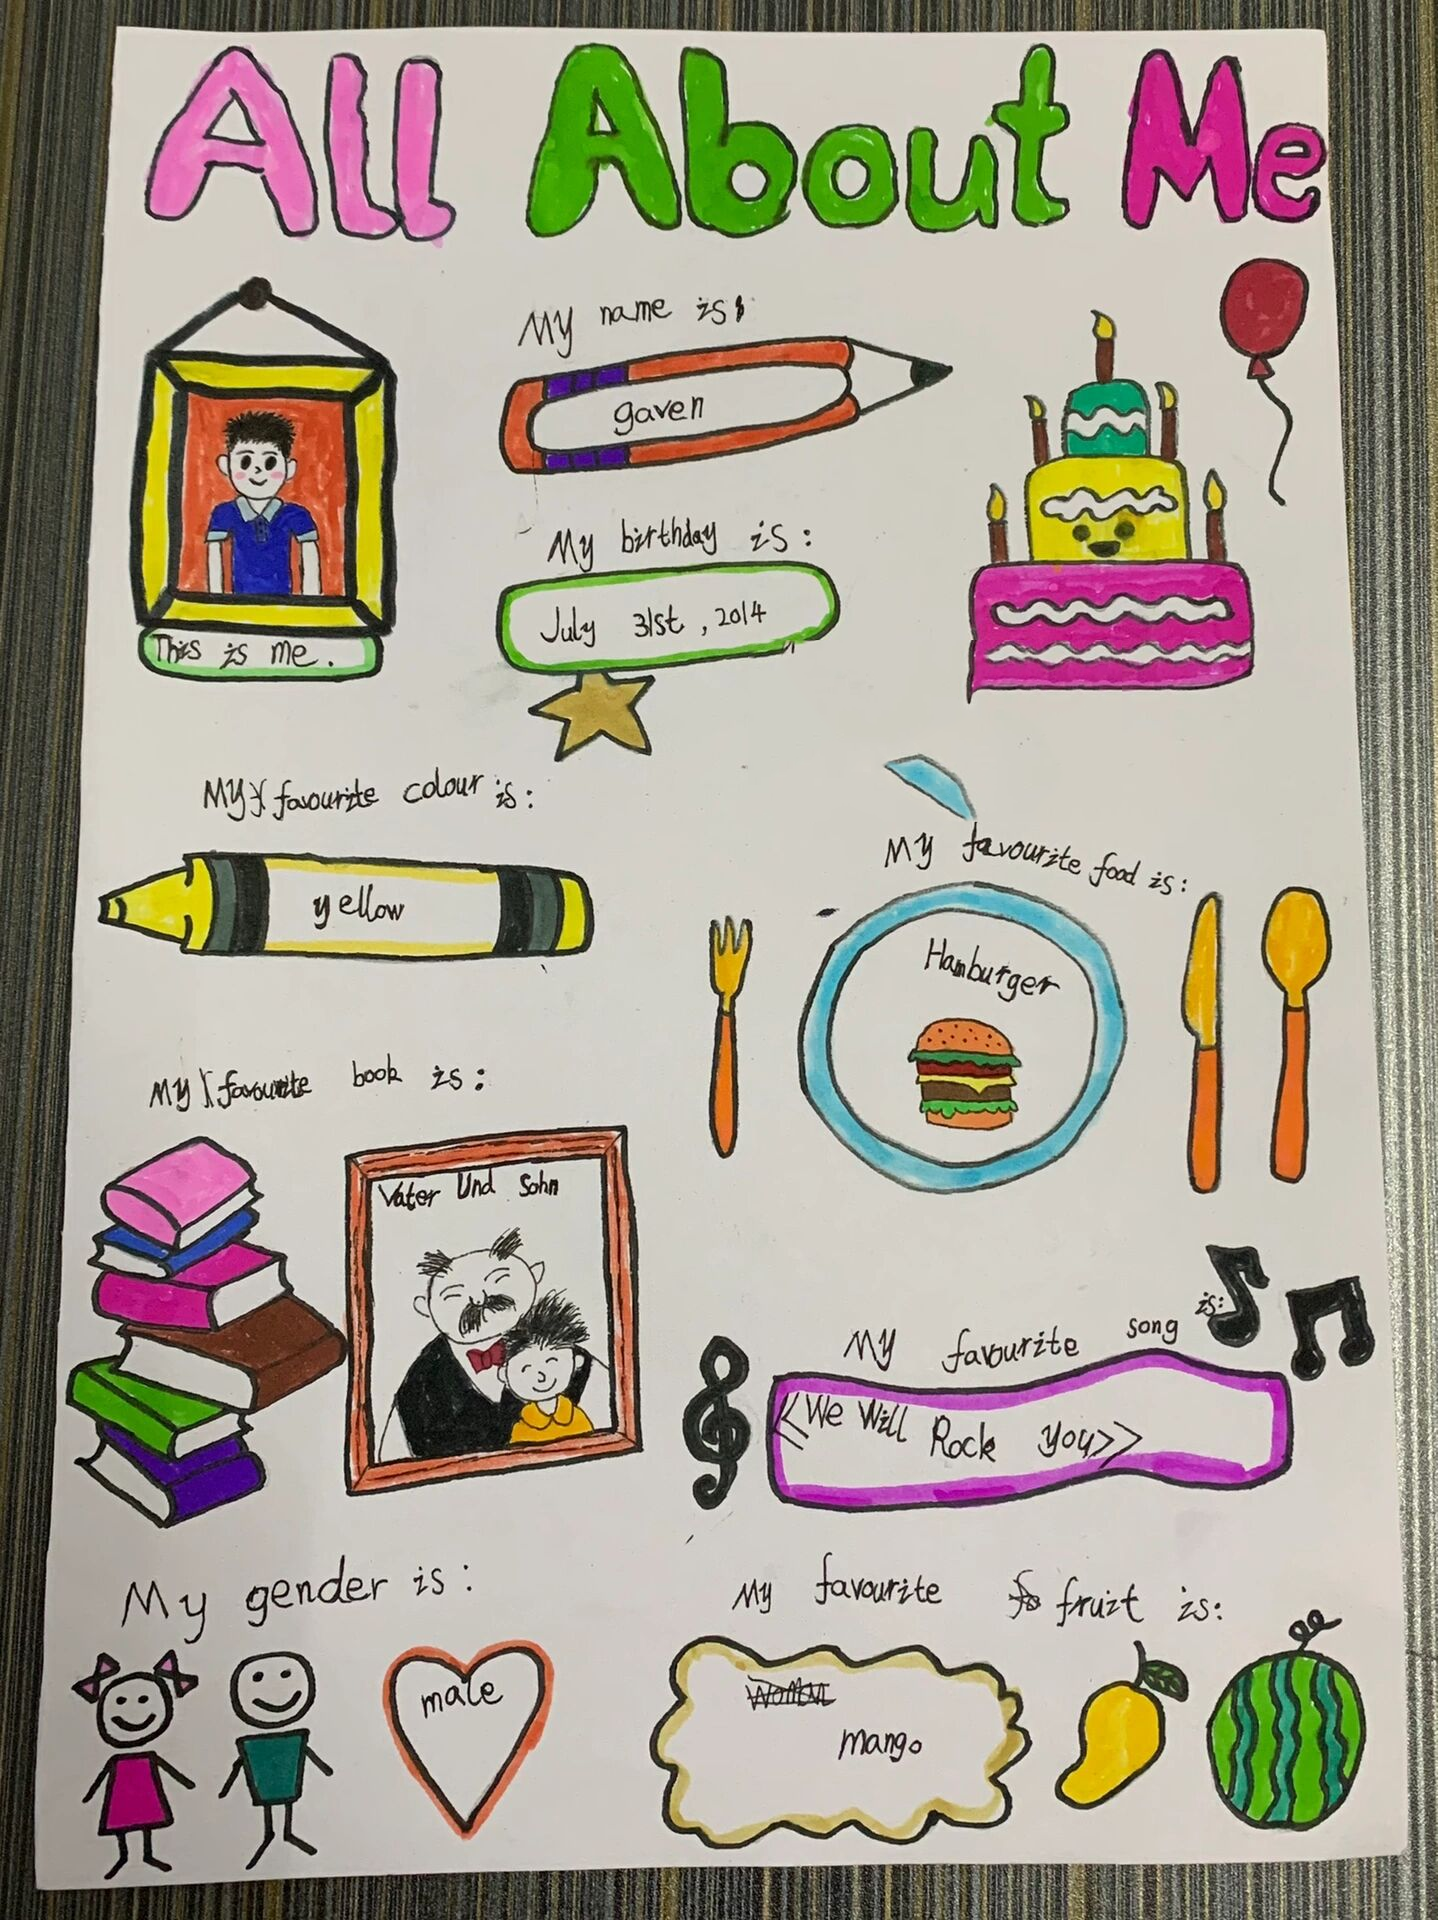 All About Me
My name is:
gaven
My birthday is:
July 31st, 2014
This is me.
My favourite colour is:
yellow
My favourite food is:
Hamburger
My favourite book is:
Vater Und Sohn
My favourite song is:
<<We Will Rock you>>
My gender is:
male
My favourite fruit is:
mango